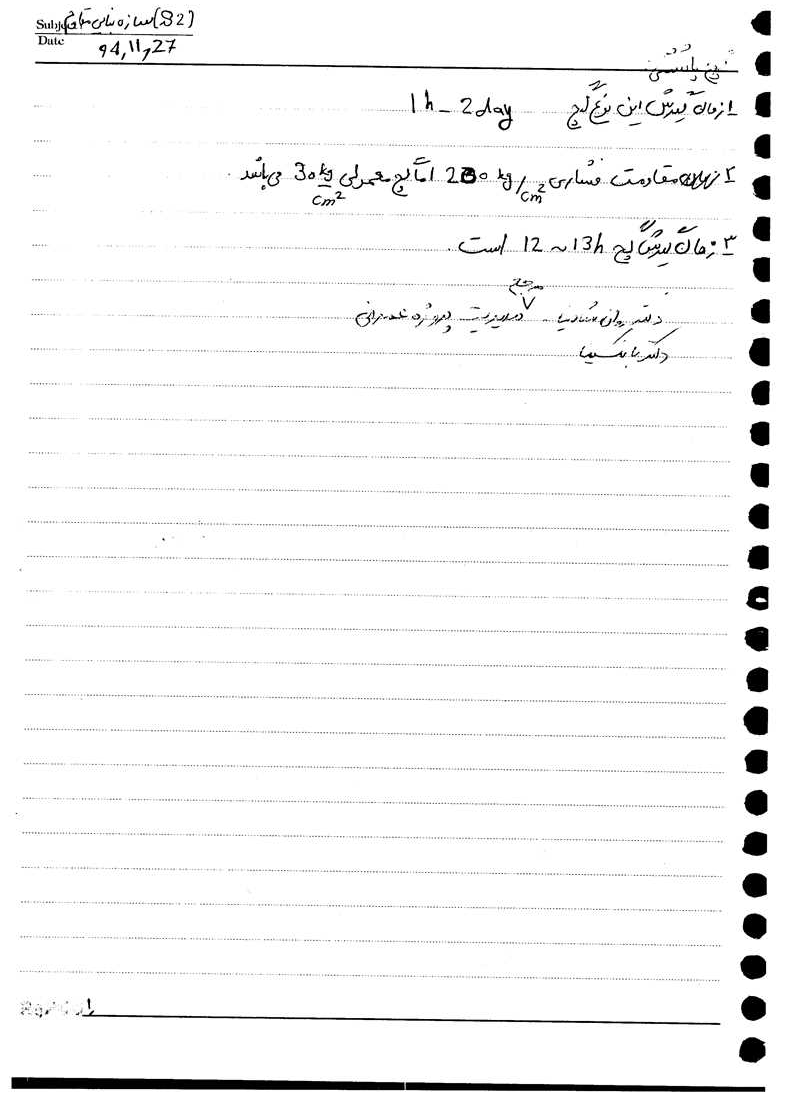 Subject سازه بنایی مقاوم (S2)
Date 94,11,27
گچ پاششی:
1 زمان گیرش این نوع گچ 1h - 2day
2 مقاومت فشاری 200 kg/cm² اما گچ معمولی 30 kg/cm² می باشد.
3 زمان گیرش گچ 12 ~ 13h است.
مرجع
دکتر مدیریت پروژه عمرانی
دکتر